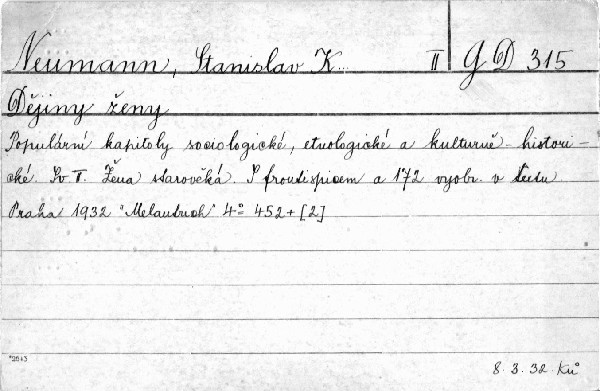 Neumann, Stanislav K... II G D 315
Dějiny ženy
Populární kapitoly sociologické, etnologické a kulturně-histori-
cké. Sv II. Žena starověká. S frontispicem a 172 vyobr. v textu
Praha 1932 "Melantrich" 4° 452+[2]
8. 3. 32 Ků